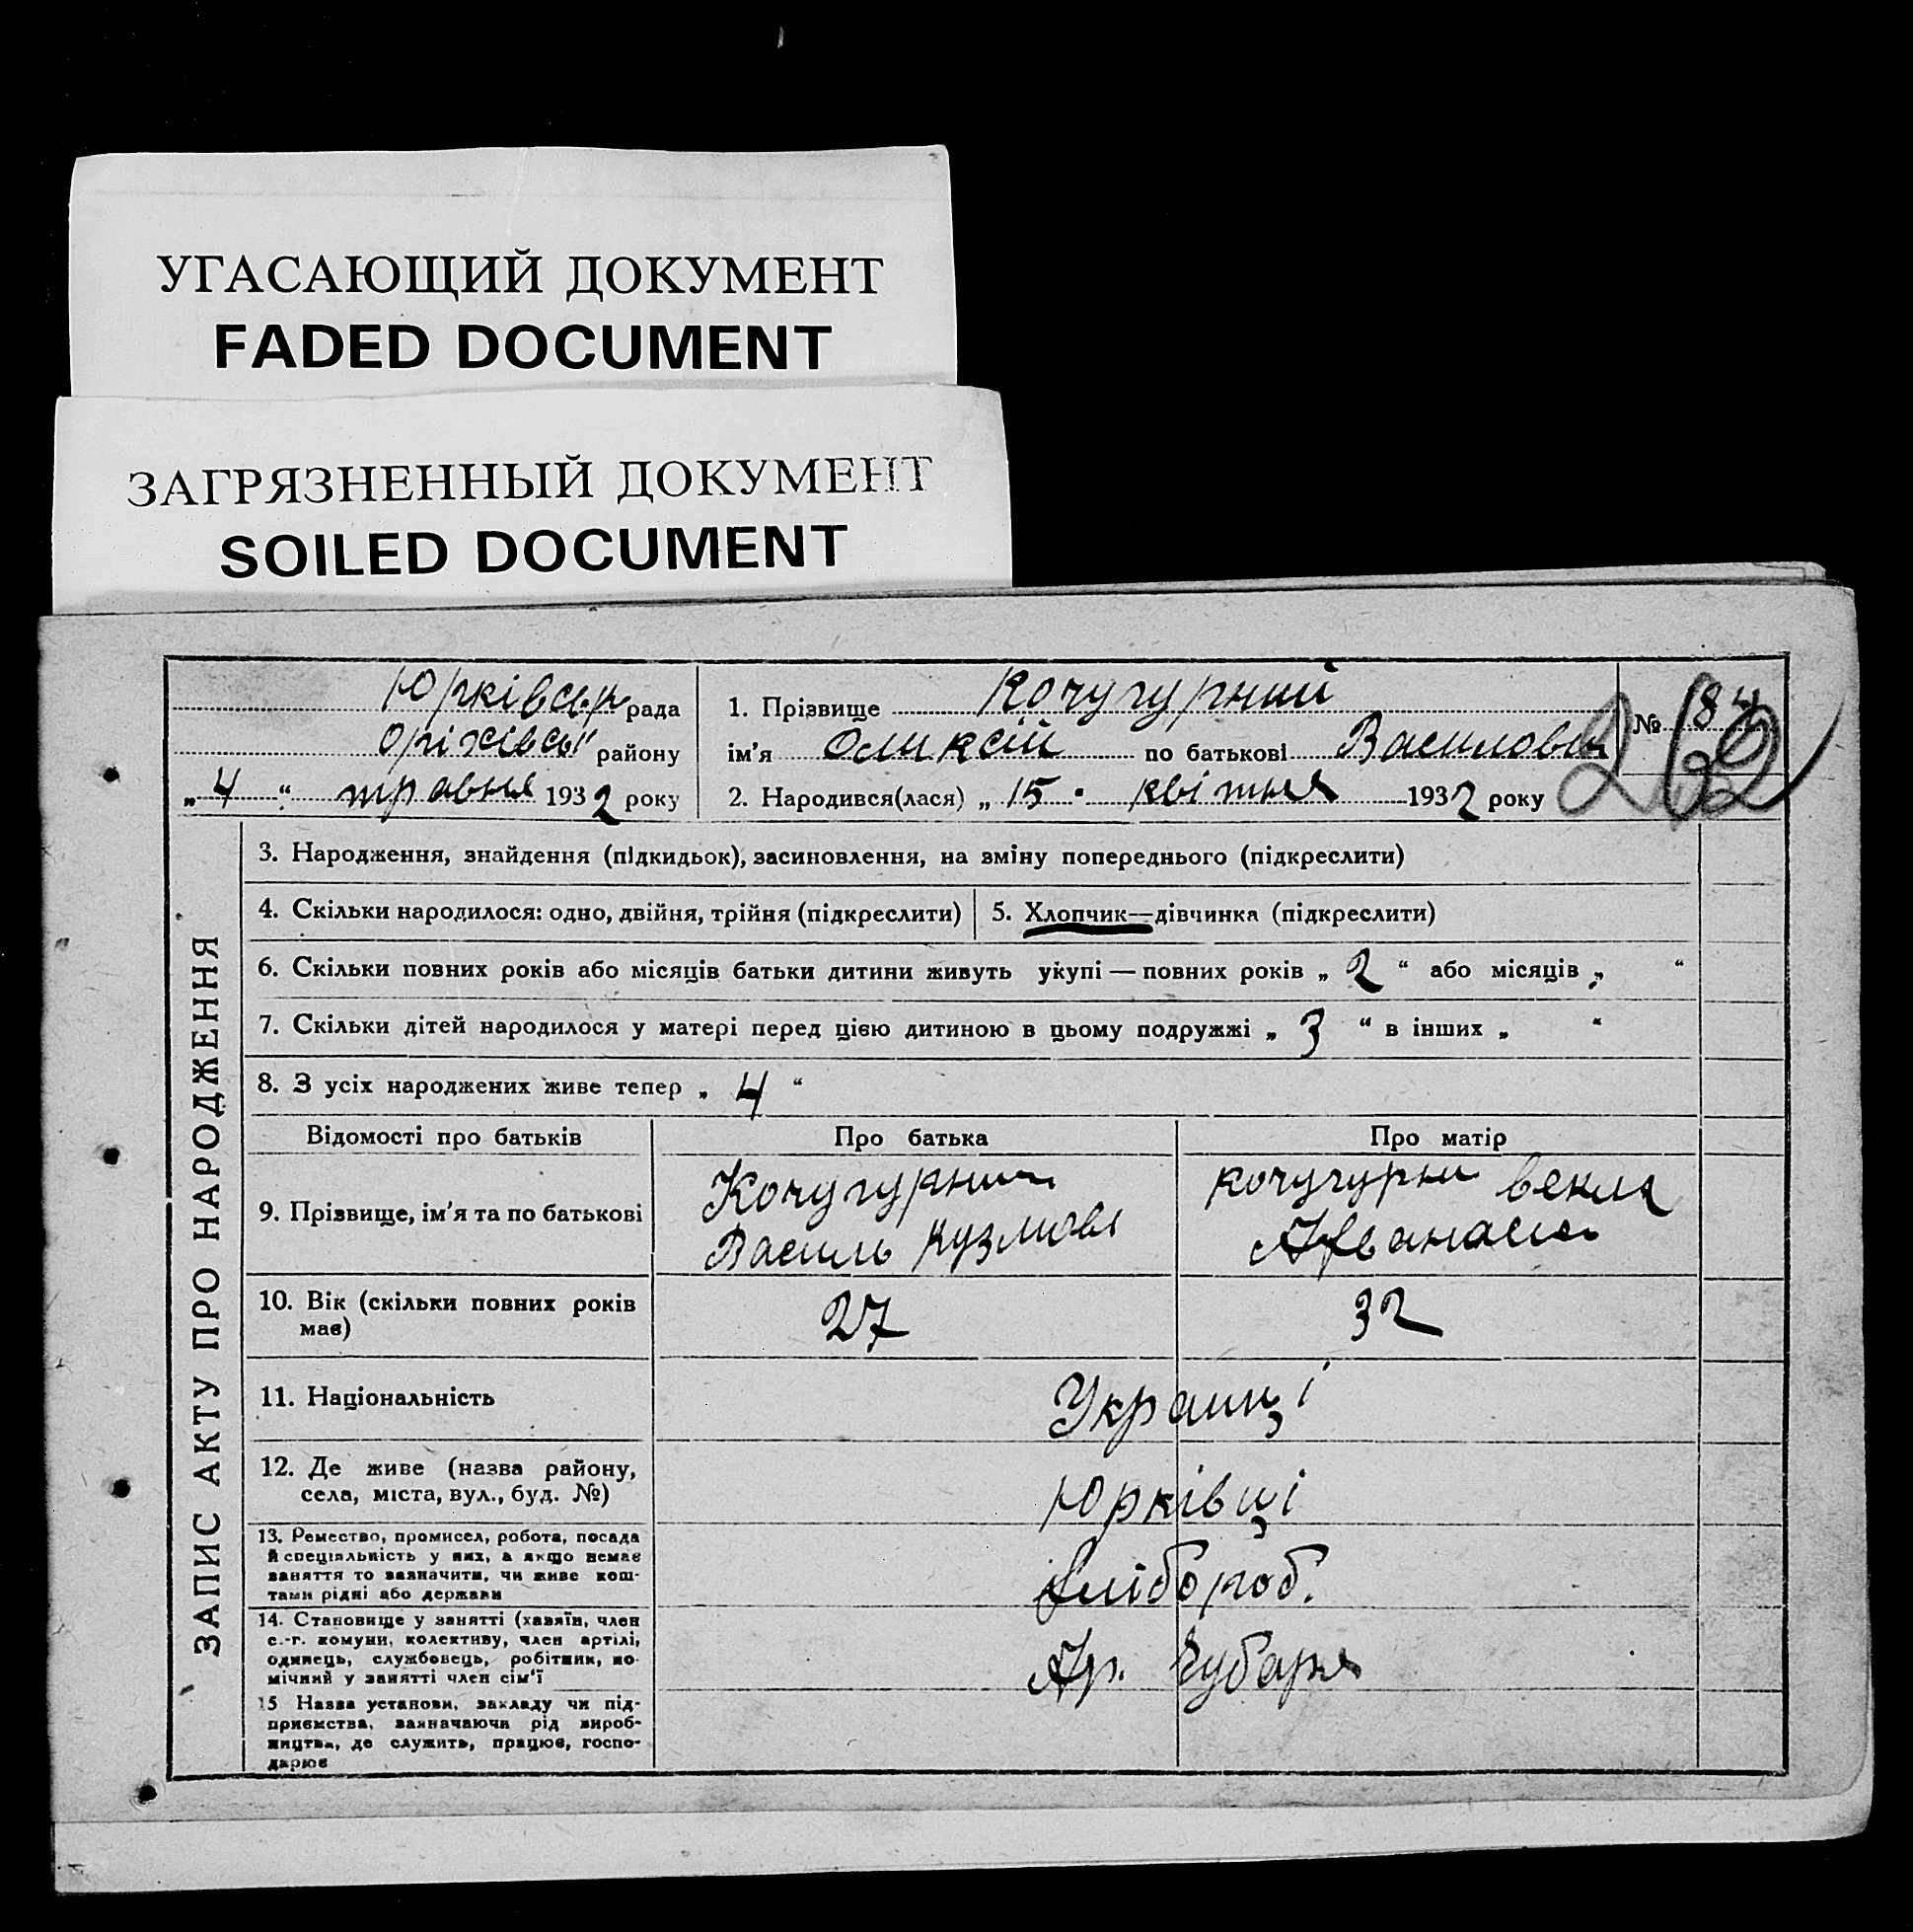 УГАСАЮЩИЙ ДОКУМЕНТ
FADED DOCUMENT
ЗАГРЯЗНЕННЫЙ ДОКУМЕНТ
SOILED DOCUMENT
Юрківськ рада
Оріхівськ району
„4“ травня 1932 року
1. Прізвище Кочугурний
ім’я Оликсій по батькові Василович
2. Народився(лася) „15. квітня 1932 року
№ 84
262
ЗАПИС АКТУ ПРО НАРОДЖЕННЯ
3. Народження, знайдення (підкидьок), засиновлення, на зміну попереднього (підкреслити)
4. Скільки народилося: одно, двійня, трійня (підкреслити)
5. Хлопчик—дівчинка (підкреслити)
6. Скільки повних років або місяців батьки дитини живуть укупі — повних років „ 2 “ або місяців „ “
7. Скільки дітей народилося у матері перед цією дитиною в цьому подружжі „ 3 “ в інших „ “
8. З усіх народжених живе тепер „ 4 “
Відомості про батьків
Про батька
Про матір
9. Прізвище, ім’я та по батькові
Кочугурний
Василь Кузмов
кочугурни векла
Афванасів
10. Вік (скільки повних років
має)
27
32
11. Національність
Украінці
12. Де живе (назва району,
села, міста, вул., буд. №)
Юрківці
13. Ремество, промисел, робота, посада
й спеціяльність у них, а якщо немає
заняття то зазначити, чи живе кош-
тами рідні або держави
Хлібороб.
14. Становище у занятті (хазяїн, член
с.-г. комуни, колективу, член артілі,
одинець, службовець, робітник, по-
мічний у занятті член сім’ї
Ар. Чубаря
15 Назва установи, закладу чи під-
приємства, зазначаючи рід вироб-
ництва, де служить, працює, госпо-
дарює